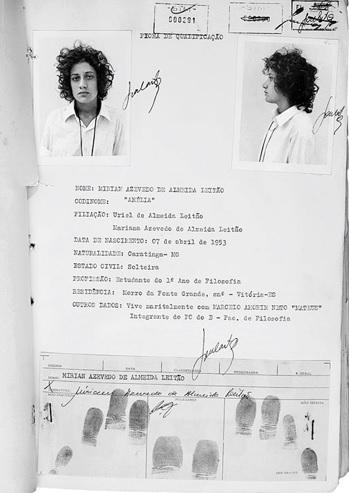 000291
FICHA DE QUALIFICAÇÃO
NOME: MIRIAN AZEVEDO DE ALMEIDA LEITÃO
CODINOME: "AMÉLIA"
FILIAÇÃO: Uriel de Almeida Leitão
Mariana Azevedo de Almeida Leitão
DATA DE NASCIMENTO: 07 de abril de 1953
NATURALIDADE: Caratinga- MG
ESTADO CIVIL: Solteira
PROFISSÃO: Estudante do 1º Ano de Filosofia
RESIDÊNCIA: Morro da Fonte Grande, snº - Vitória-ES
OUTROS DADOS: Vive maritalmente com MARCELO AMORIM NETO "MATEUS"
Integrante do PC do B - Fac. de Filosofia
DATA
MIRIAN AZEVEDO DE ALMEIDA LEITÃO
Azevedo de Almeida Leitão